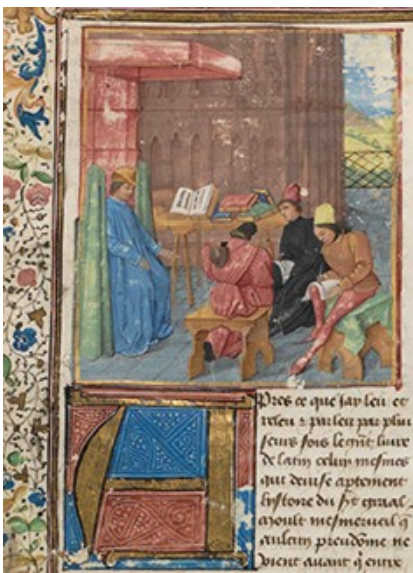 Apres ce que jay leu et
releu & parleu par plui
seurs fois le gnt liure
de latin celuy mesmes
qui deuise aptement
lystoire du st graal
moult mesmerueil q̃
aulcun preudõme ne
vient auant q̃ entre